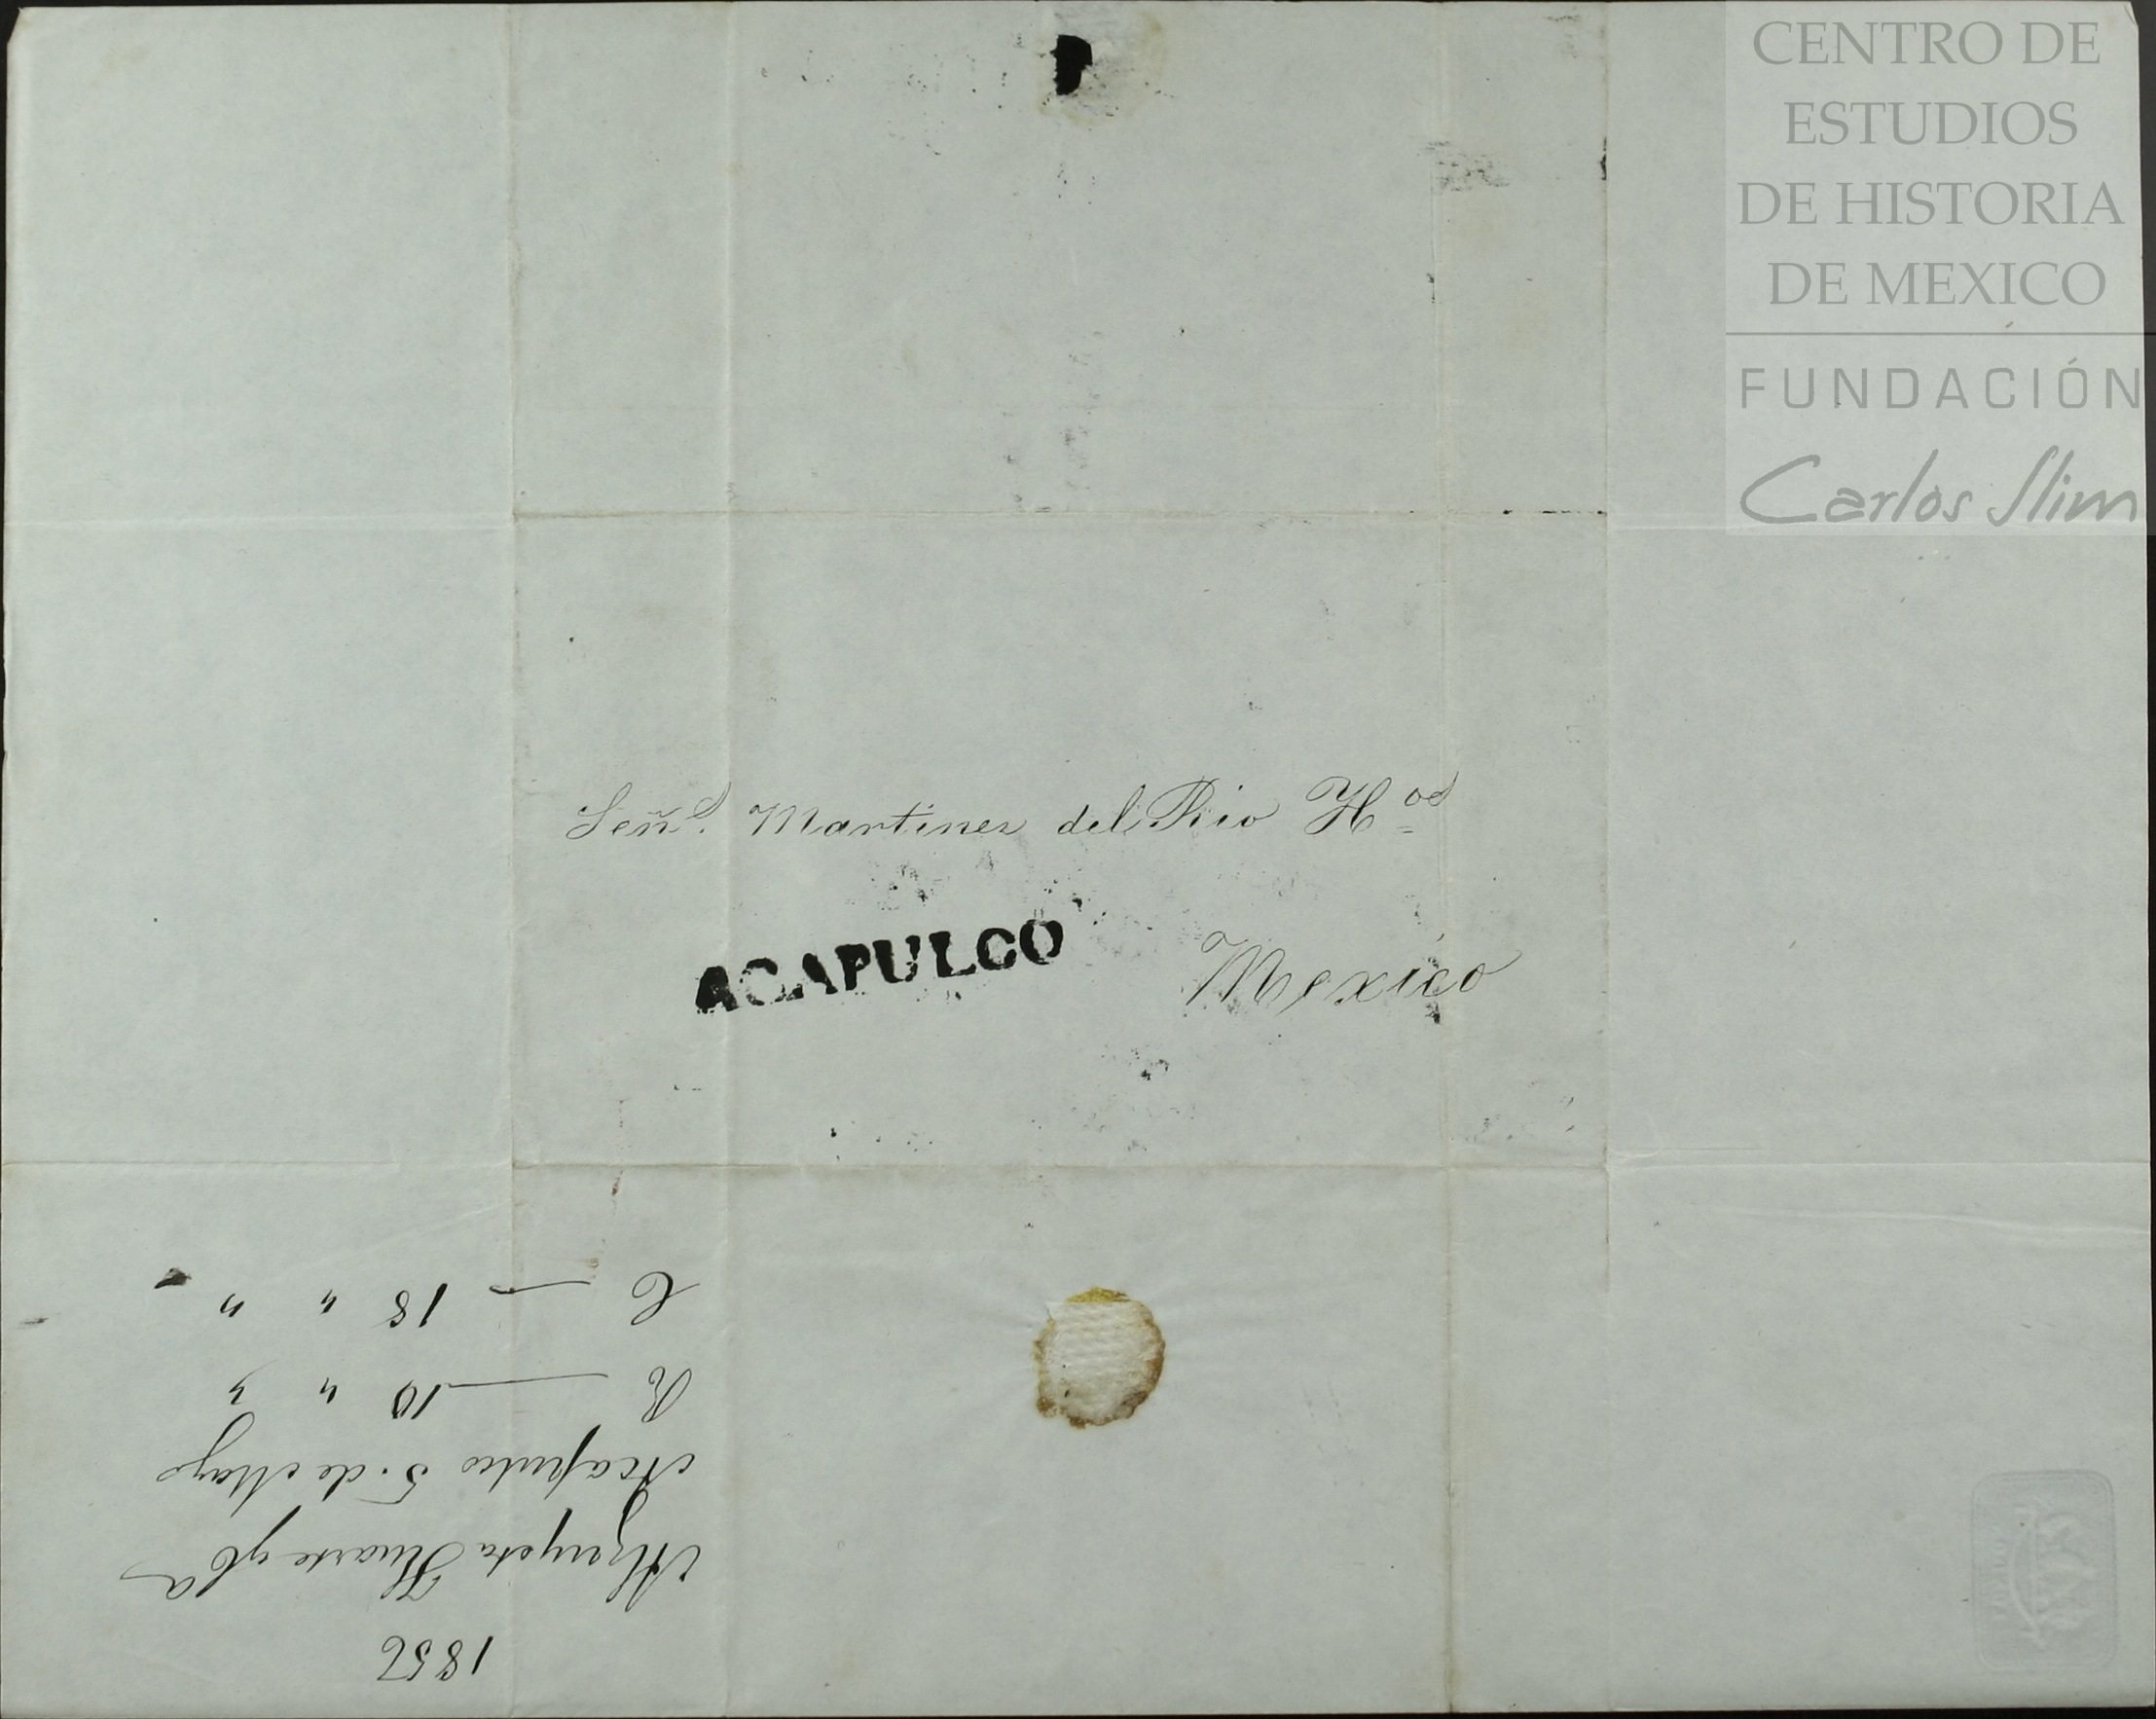 CENTRO DE
ESTUDIOS
DE HISTORIA
DE MEXICO
FUNDACIÓN
Carlos Slim
Señs. Martinez del Rio Hos
ACAPULCO
Mexico
1856
Huarte y Ca
Acapulco 5. de Mayo
R — 10 " "
C — 18 " "